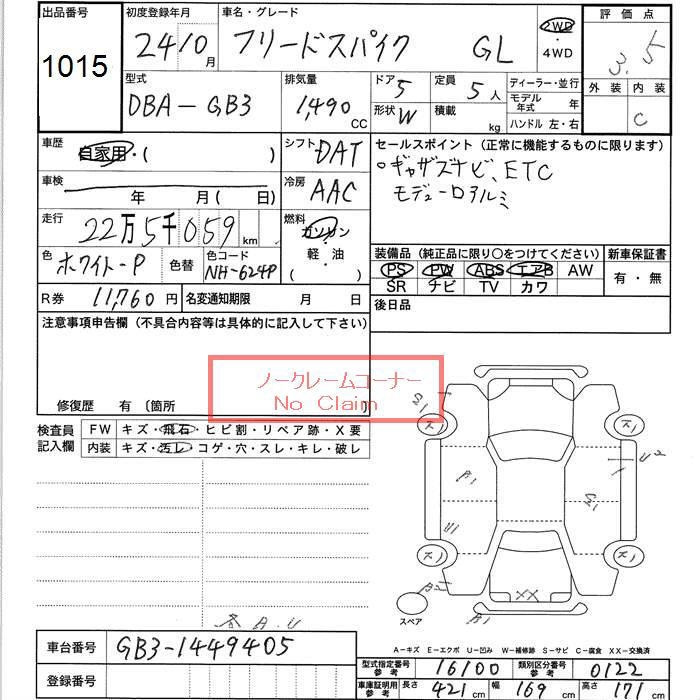 出品番号
1015
初度登録年月
24 10月
車名・グレード
フリードスパイク GL
2WD
・
4WD
評価点
3.5
外装 内装
C
型式
DBA-GB3
排気量
1,490
CC
ドア 5
形状 W
定員 5人
積載 kg
ディーラー・並行
モデル年式 年
ハンドル 左・右
車歴
自家用・( )
シフト DAT
セールスポイント(正常に機能するものに限ります)
○ギャザズナビ、ETC
モデューロアルミ
車検
年 月(日)
冷房 AAC
走行
22万5千059km
燃料
ガソリン
・
軽・油
・
( )
色 ホワイト-P
色替
色コード
NH-624P
装備品(純正品に限り○をつけてください)
PS PW ABS エアB AW
SR ナビ TV カワ
新車保証書
有・無
R券 11,760円
名変通知期限 月 日
後日品
注意事項申告欄(不具合内容等は具体的に記入して下さい)
ノークレームコーナー
No Claim
修復歴 有〔箇所 〕
検査員記入欄
FW キズ・飛石・ヒビ割・リペア跡・X要
内装 キズ・汚レ・コゲ・穴・スレ・キレ・破レ
B1
U1
U2
B2
XX
B1
スペア
A.B.U
A-キズ E-エクボ U-凹み W-補修跡 S-サビ C-腐食 XX-交換済
車台番号 GB3-1449405
登録番号
型式指定番号参考 16100
類別区分番号参考 0122
車庫証明用参考 長さ 421cm 幅 169cm 高さ 171cm